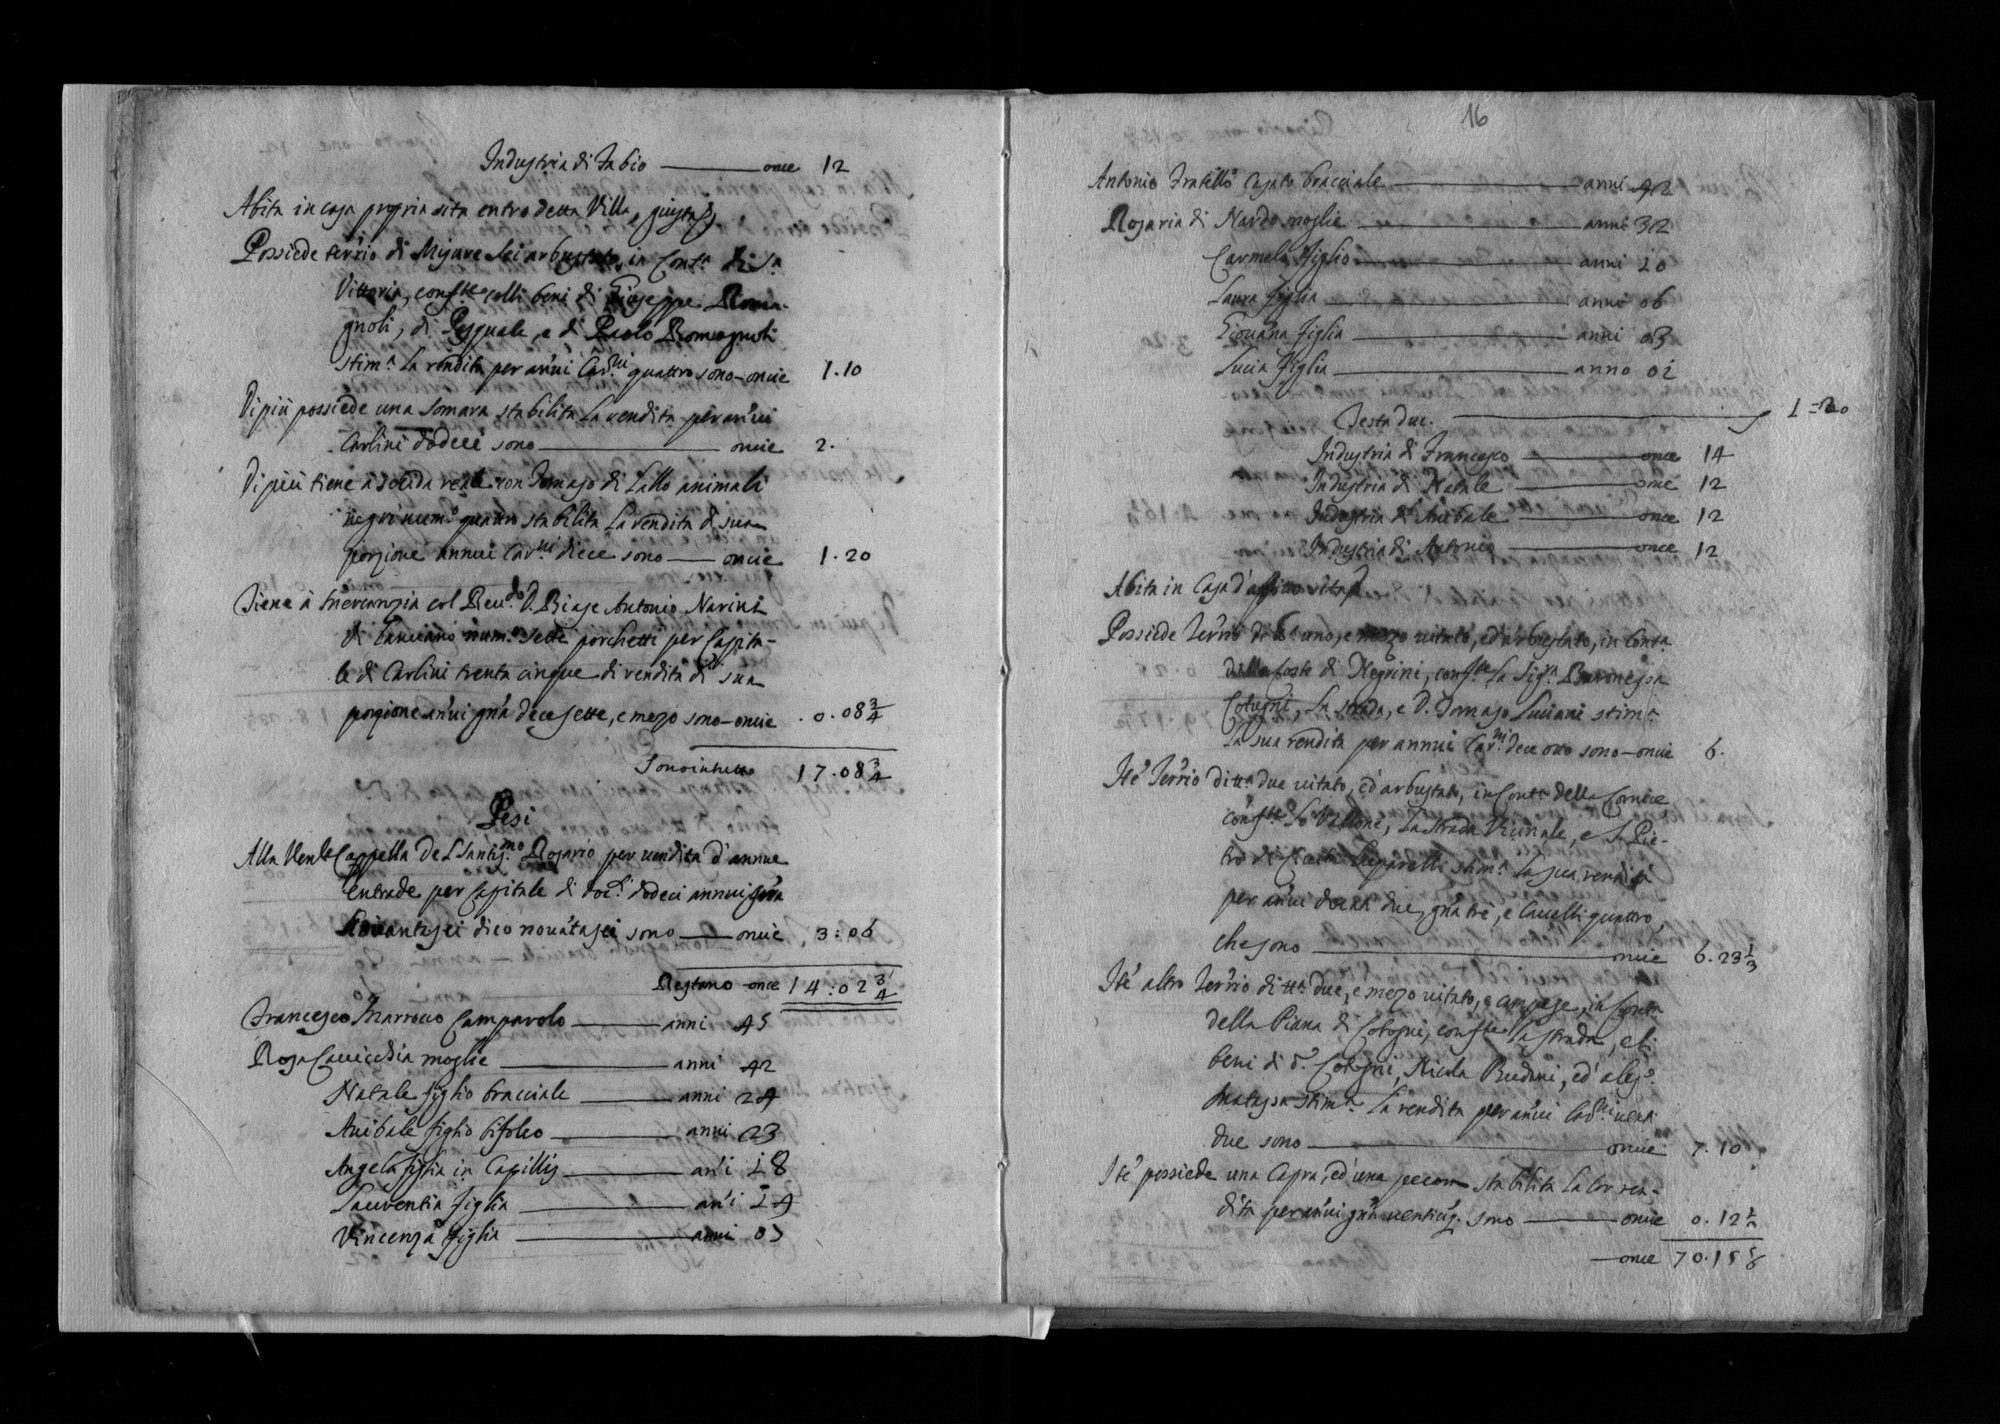 Industria di Fabio —— once 12
Abita in casa propria sita entro detta Villa, giusta
Possiede terrio di Misure sei arbustato, in Contᵃ di Sᵃ
Vittoria, confᵗᵉ colli beni di Giuseppe Roma-
gnoli, di Pasquale, e di Paolo Romagnoli
stimᵃ la rendita per anui Carⁿⁱ quattro sono – oncie 1.10
Di più possiede una somara stabilita la rendita per anui
Carlini dodeci sono —— oncie 2.
Di più tiene à soccida con Tomaso di Lallo animali
negri numᵒ quattro stabilita la rendita di sua
porzione annui Carⁿⁱ diece sono —— oncie 1.20
Tiene à mercanzia col Reudᵒ D. Biase Antonio Narini
di Lanciano numᵒ sette porchetti per Capita-
le di Carlini trenta cinque di rendita di sua
porzione anui gna decesette, e mezo sono – oncie .0.08 3/4
Sono in tutto 17.08 3/4
Pesi
Alla Venˡᵉ Cappella del Santisᵐᵒ Rosario per uendita d'annue
entrade per Capitale di docᵗⁱ dodeci annui gna
novantasei dico nouatasei sono —— oncie, 3:06
Restano once 14:02 3/4
Francesco Marrocco Camparolo —— anni 45
Rosa Cauicchia moglie —— anni 42
Natale figlio bracciale —— anni 24
Anibale figlio bifolco —— anni 23
Angela figlia in Capillis —— ani 18
Lauventia figlia —— ani 14
Vincenza figlia —— anni 05
16
Antonio Fratello casato bracciale —— anni 42
Rosaria di Nardo moglie —— anni 32
Carmela figlia —— anni 10
Laura figlia —— anni 06
Giouana figlia —— anni 03
Lucia figlia —— anno 01
Testa due. ——
Industria di Francesco —— once 14
Industria di Natale —— once 12
Industria di Anibale —— once 12
Industria di Antonio —— once 12
Abita in Casa d'affitto sita
Possiede Terrio di tᵃ uno, e mezo uitato, ed arbustato, in Contᵃ
della Coste di Negrini, confᵗᵉ la Sigʳᵃ Baronessa
Cotugni, la strada, e D. Tomaso Luciani stimᵃ
la sua rendita per annui Carⁿⁱ dece otto sono – oncie 6.
Ite Terrio di ttᵃ due uitato, ed arbustato, in Contᵃ della Cornice
confᵗᵉ lo Vallone, la strada Vicinale, e
stimᵃ la sua rendita
per anui docati due, gna tre, e Cauelli quattro
che sono —— oncie 6.23 1/3
Ite altro Terrio di ttᵃ due, e mezo uitato, e campese, in Contᵃ
della Piana di Cotogni, confᵗᵉ la strada, e li
beni di d. Cotogni, Nicola Budani, ed Alesᵒ
Matassa stimᵃ la rendita per anui Carⁿⁱ uenti
due sono —— oncie 7.10
Ite possiede una Capra, ed una pecora stabilita la lor ren-
dita per anui gna uenticinq. sono —— oncie 0.12 1/2
—— once 70.15 5/6